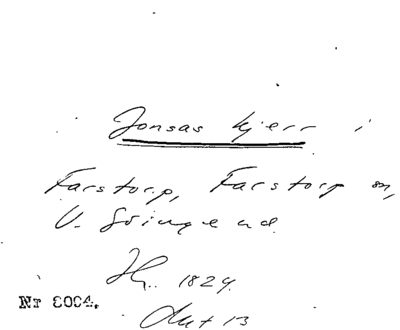 Jonsas kjerr i
Farstorp, Farstorp sn,
V. Göinge hd.
1829.
Akt 13
Nr 8004.